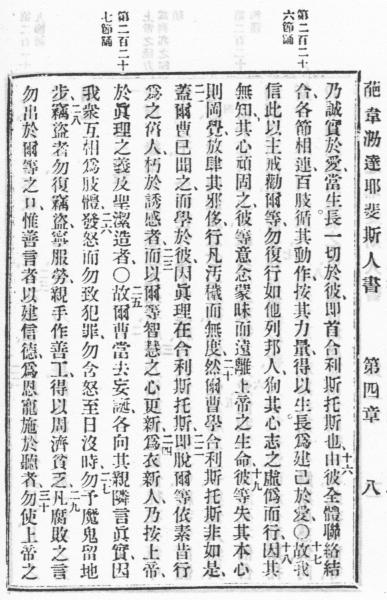 葩韋泐達耶斐斯人書 第四章 八
第二百二十
六節誦
第二百二十
七節誦
乃誠實於愛、當生長一切於彼、即首合利斯托斯也、十六由彼全體聯絡結
合各節相連、百肢循其動作、按其力量、得以生長、爲建己於愛、〇十七故我
信此以主戒勸爾等、勿復行如他列邦人、狥其心志之虛僞而行、十八因其
無知、其心頑固之、彼等意念蒙昧而遠離上帝之生命、十九彼等失其本心
則罔覺、放肆其邪侈、行凡汚穢而無度、二十然爾曹學合利斯托斯非如是、
二一蓋爾曹已聞之而學於彼、因眞理在合利斯托斯、二二即脫爾等依素昔行
爲之舊人、朽於誘惑者、二三而以爾等智慧之心更新、二四爲衣新人、乃按上帝、
於眞理之義及聖潔造者、〇二五故爾曹當去妄誕、各向其親隣言眞實、因
我衆互相爲肢體、二六發怒而勿致犯罪、勿含怒至日沒時、二七勿予魔鬼留地
步、二八竊盜者勿復竊盜、寧服勞、親手作善工、得以周濟貧乏、二九凡腐敗之言
勿出於爾等之口、惟善言者、以建信德、爲恩寵施於聽者、三十勿使上帝之